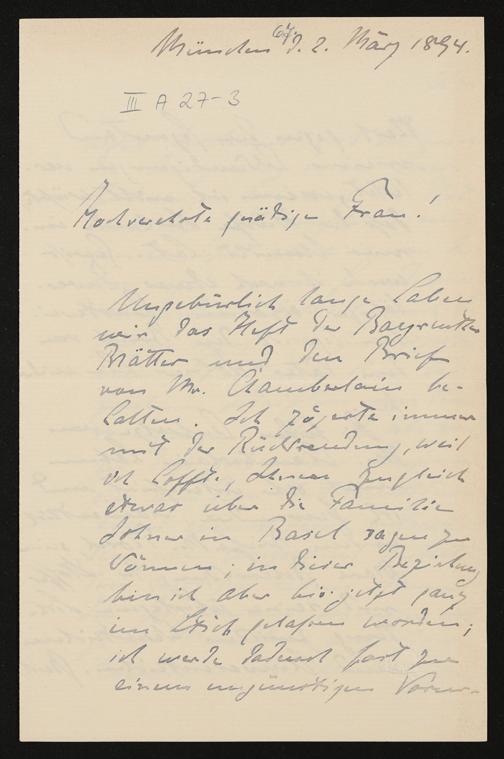 München d. 2. März 1894.
III A 27-3
Hochverehrte gnädige Frau!
Ungebürlich lange haben
wir das Heft der Bayreuther
Blätter und den Brief
von Mr. Chamberlain be-
halten. Ich zögerte immer
mit der Rücksendung, weil
ich hoffte, Ihnen zugleich
etwas über die Familie
in Basel sagen zu
können; in dieser Beziehung
bin ich aber bis jetzt ganz
im Stich gelassen worden;
ich werde dadurch fast zu
einem ungünstigen Vorur-